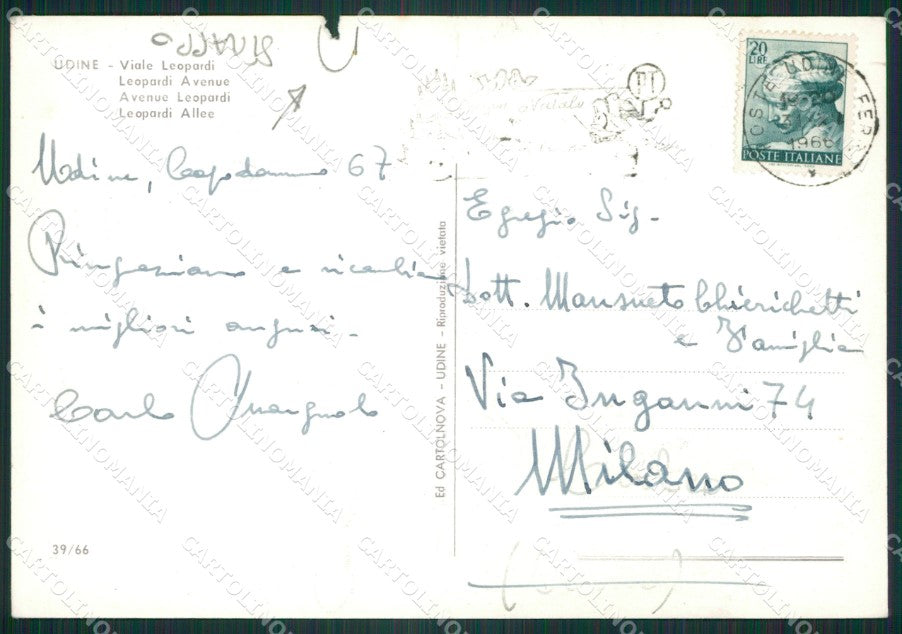 STRAPPO
UDINE - Viale Leopardi
Leopardi Avenue
Avenue Leopardi
Leopardi Allee
Udine, Capodanno 67
Ringraziamo e ricambia
i migliori auguri -
Carlo
39/66
Ed CARTOLNOVA - UDINE - Riproduzione vietata
20
LIRE
POSTE ITALIANE
UDINE FERR
1966
Egregio Sig.
Dott. Mansueto Chierichetti
e Famiglia
Via Inganni 74
Milano
CARTOLINOMANIA